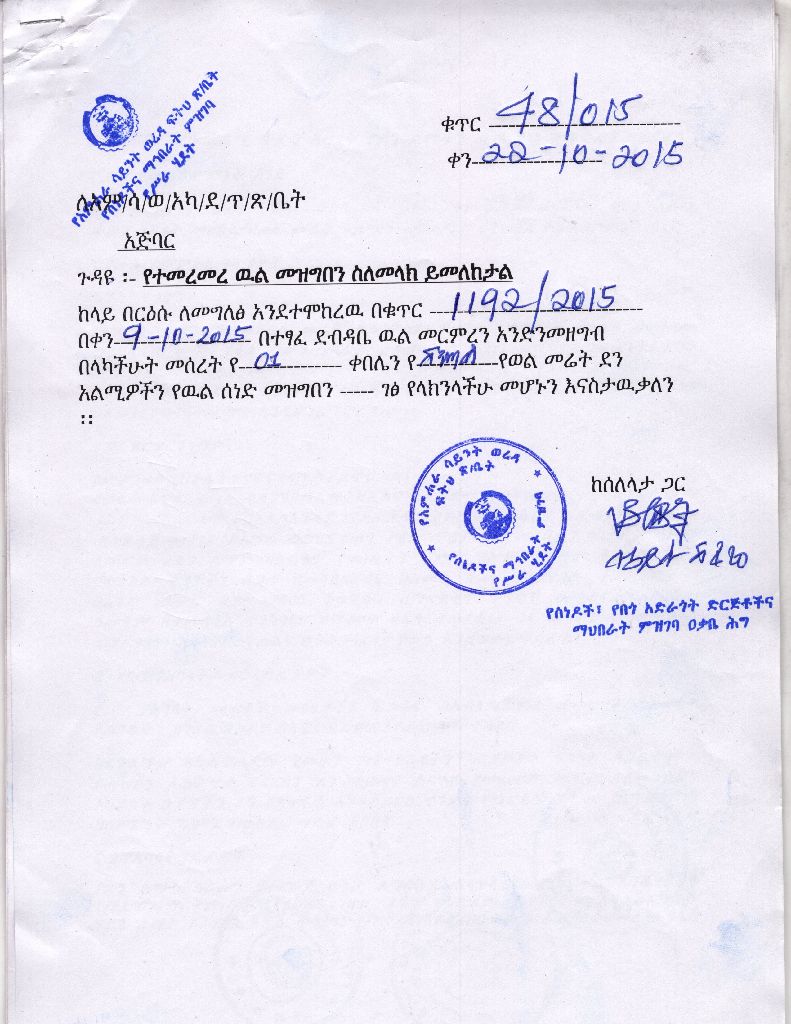 የአምሐራ ሳይንት ወረዳ ፍትህ ጽ/ቤት
የሰነዶችና ማኅበራት ምዝገባ
የሥራ ሂደት
ቁጥር 48/015
ቀን 22-10-2015
ለአም/ሳ/ወ/አካ/ደ/ጥ/ጽ/ቤት
አጅባር
ጉዳዩ ፡- የተመረመረ ዉል መዝግበን ስለመላክ ይመለከታል
ከላይ በርዕሱ ለመግለፅ እንደተሞከረዉ በቁጥር 1192/2015
በቀን 9-10-2015 በተፃፈ ደብዳቤ ዉል መርምረን እንድንመዘግብ
በላካችሁት መሰረት የ 01 ቀበሌን የ የወል መሬት ደን
አልሚዎችን የዉል ሰነድ መዝግበን ----- ገፅ የላክንላችሁ መሆኑን እናስታዉቃለን
፡፡
የአምሐራ ሳይንት ወረዳ
ፍትህ ጽ/ቤት
የሰነዶችና ማኅበራት ምዝገባ
የሥራ ሂደት
ከሰለላታ ጋር
የሰነዶች፣ የበጎ አድራጎት ድርጅቶችና
ማህበራት ምዝገባ ዐቃቤ ሕግ